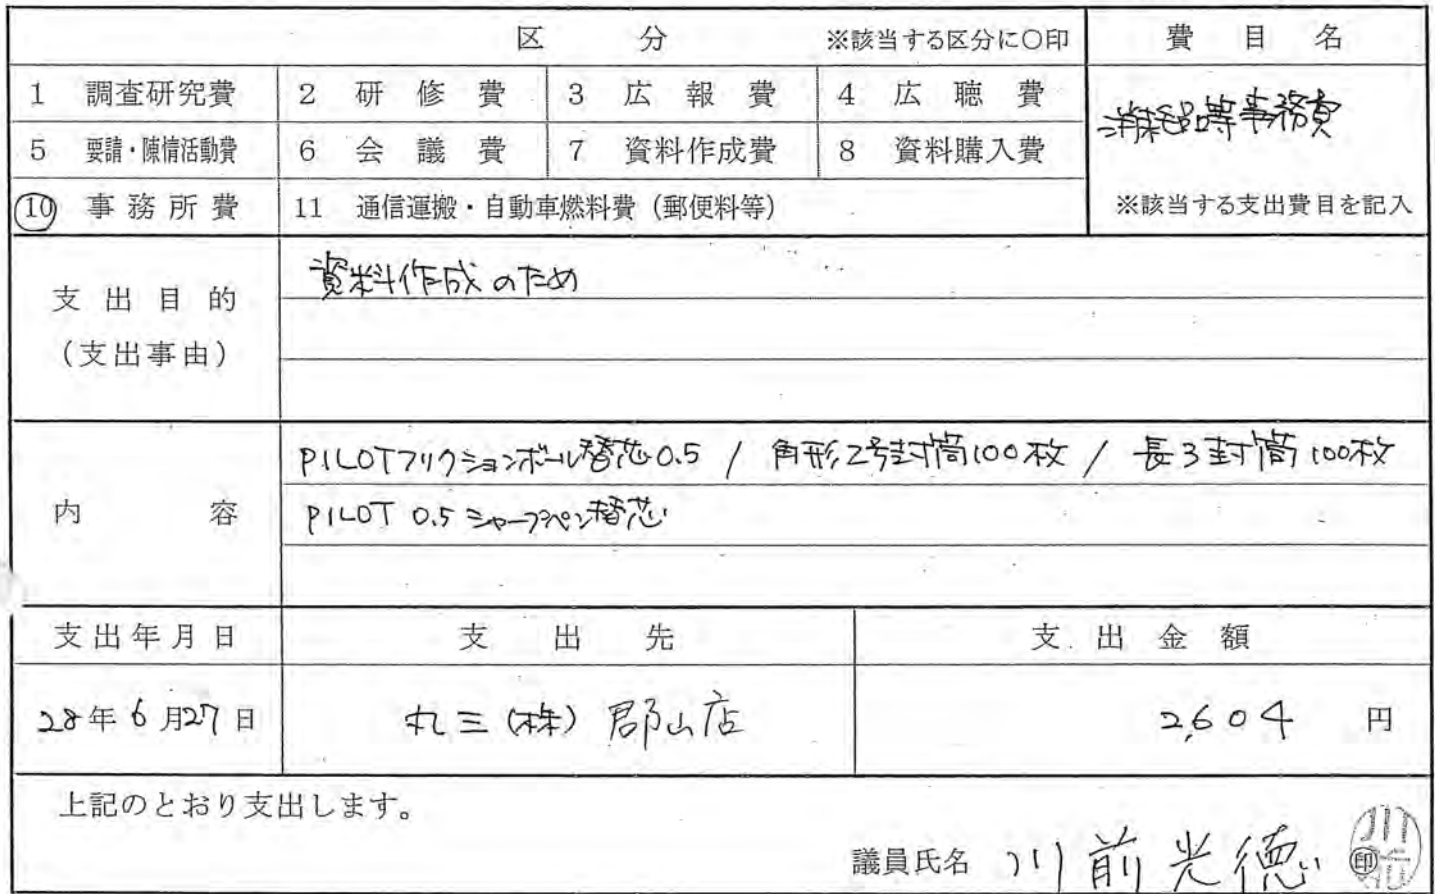 区 分 ※該当する区分に○印 費 目 名
1 調査研究費 2 研 修 費 3 広 報 費 4 広 聴 費
消耗品等事務費
5 要請・陳情活動費 6 会 議 費 7 資料作成費 8 資料購入費
10 事務所費 11 通信運搬・自動車燃料費（郵便料等） ※該当する支出費目を記入
資料作成のため
支出目的
（支出事由）
PILOTフリクションボール替芯0.5 / 角形2号封筒100枚 / 長3封筒100枚
内 容 PILOT 0.5シャープペン替芯
支出年月日 支 出 先 支 出 金 額
28年6月27日 丸三(株) 郡山店 2,604 円
上記のとおり支出します。
議員氏名 川前光徳 印